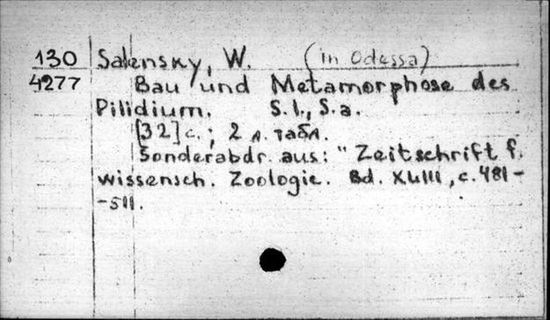 130 Salensky, W. (in Odessa)
4277 Bau und Metamorphose des
Pilidium. S.l., S.a.
[32] с.; 2 л. табл.
Sonderabdr. aus: "Zeitschrift f.
wissensch. Zoologie. Bd. XLIII, с. 481-
-511.